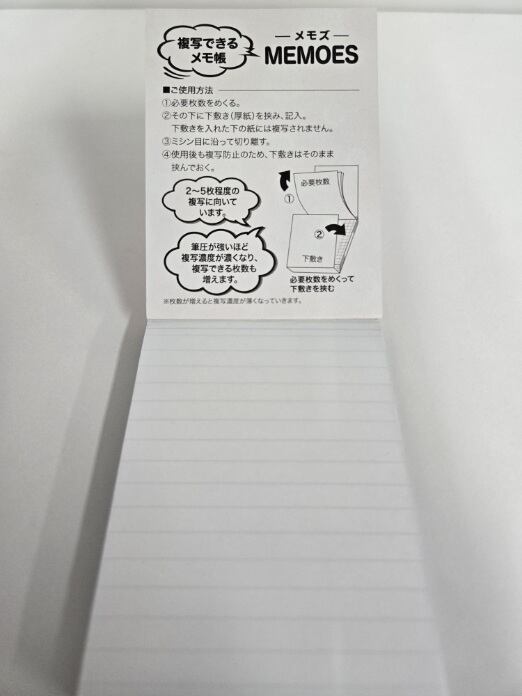 複写できる
メモ帳
メモズ
MEMOES
■ご使用方法
①必要枚数をめくる。
②その下に下敷き(厚紙)を挟み、記入。
下敷きを入れた下の紙には複写されません。
③ミシン目に沿って切り離す。
④使用後も複写防止のため、下敷きはそのまま
挟んでおく。
2〜5枚程度の
複写に向いて
います。
筆圧が強いほど
複写濃度が濃くなり、
複写できる枚数も
増えます。
必要枚数
①
②
下敷き
必要枚数をめくって
下敷きを挟む
※枚数が増えると複写濃度が薄くなっていきます。